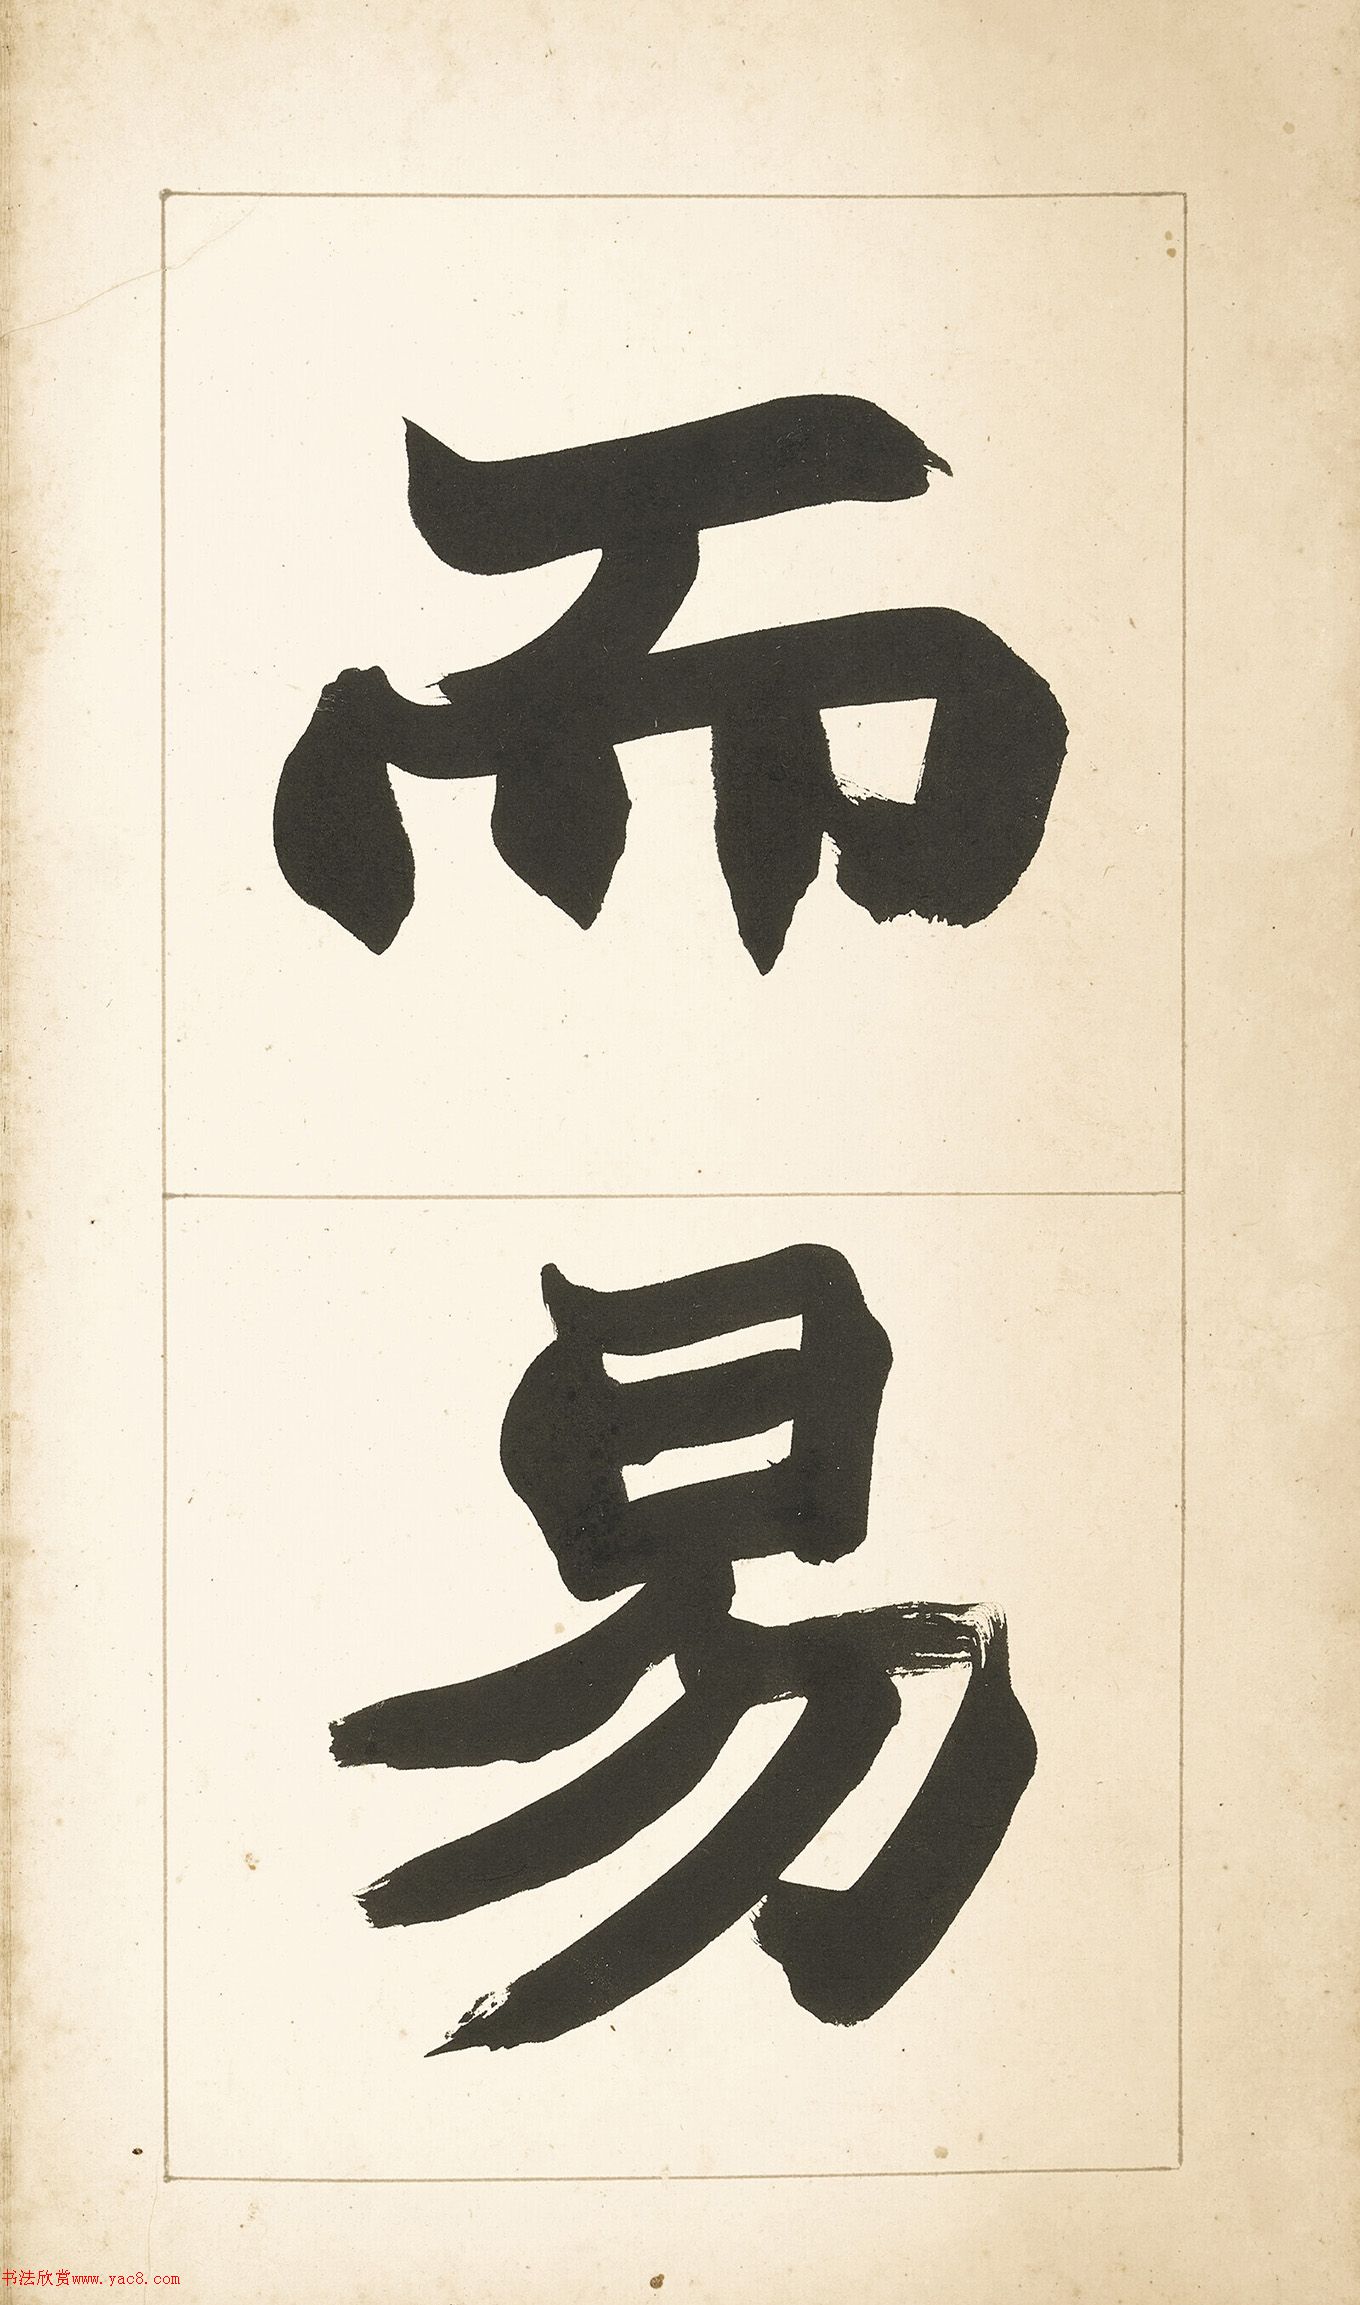 而
易
书法欣赏www.yac8.com